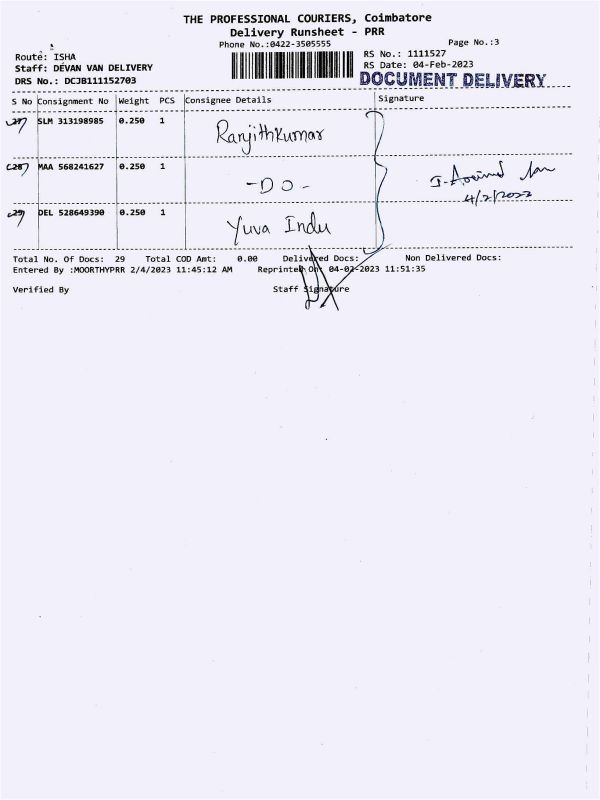 THE PROFESSIONAL COURIERS, Coimbatore
Delivery Runsheet - PRR
Phone No.:0422-3505555
Page No.:3
Route: ISHA
RS No.: 1111527
Staff: DEVAN VAN DELIVERY
RS Date: 04-Feb-2023
DRS No.: DCJB111152703
DOCUMENT DELIVERY
S No Consignment No Weight PCS Consignee Details Signature
27 SLM 313198985 0.250 1 Ranjithkumar
28 MAA 568241627 0.250 1 -DO-
4/2/2023
29 DEL 528649390 0.250 1 Yuva Indu
Total No. Of Docs: 29 Total COD Amt: 0.00 Delivered Docs: Non Delivered Docs:
Entered By :MOORTHYPRR 2/4/2023 11:45:12 AM Reprinted On: 04-02-2023 11:51:35
Verified By Staff Signature